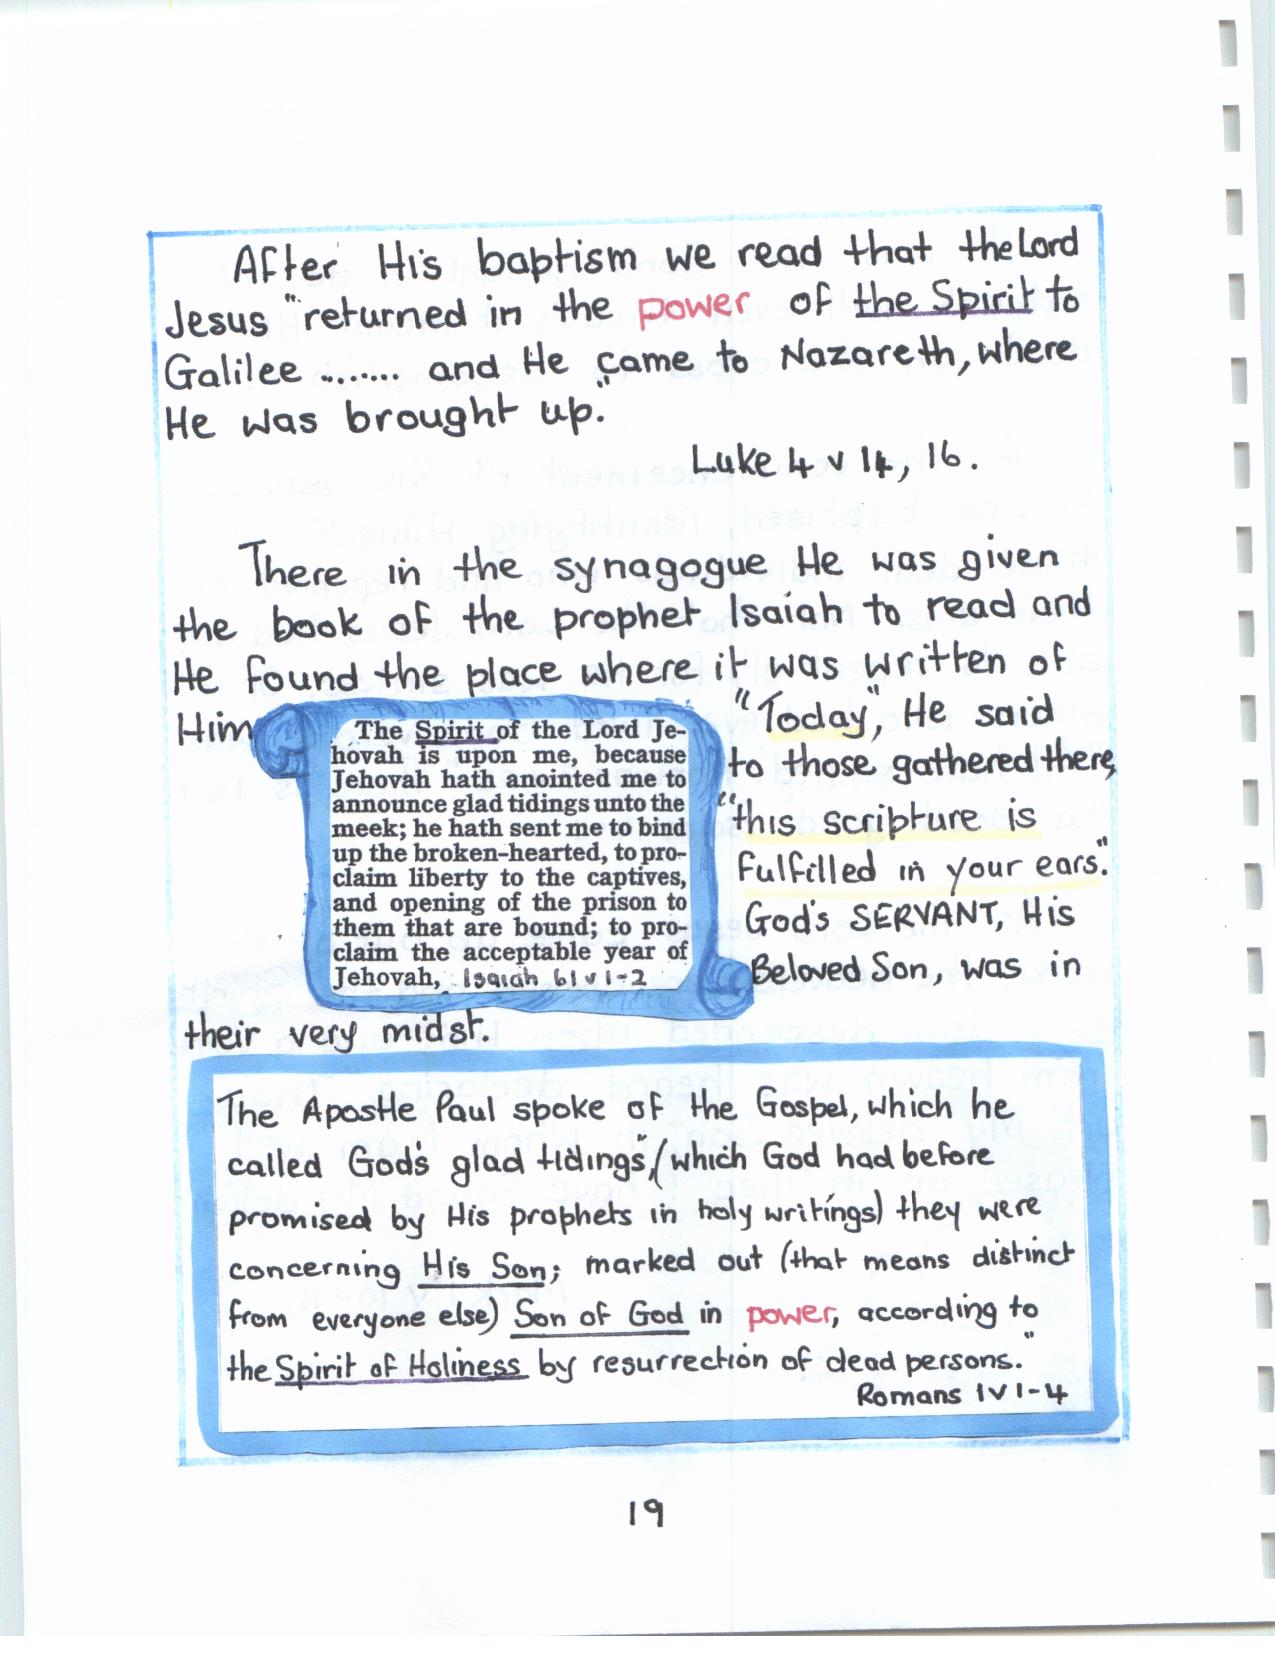 After His baptism we read that the Lord
Jesus "returned in the power of the Spirit to
Galilee ........ and He came to Nazareth, where
He was brought up."
Luke 4 v 14, 16.
There in the synagogue He was given
the book of the prophet Isaiah to read and
He found the place where it was written of
Him
The Spirit of the Lord Je-
hovah is upon me, because
Jehovah hath anointed me to
announce glad tidings unto the
meek; he hath sent me to bind
up the broken-hearted, to pro-
claim liberty to the captives,
and opening of the prison to
them that are bound; to pro-
claim the acceptable year of
Jehovah, Isaiah 61 v 1-2
"Today", He said
to those gathered there,
"this scripture is
fulfilled in your ears."
God's SERVANT, His
Beloved Son, was in
their very midst.
The Apostle Paul spoke of the Gospel, which he
called God's glad tidings", (which God had before
promised by His prophets in holy writings) they were
concerning His Son; marked out (that means distinct
from everyone else) Son of God in power, according to
the Spirit of Holiness by resurrection of dead persons."
Romans 1 v 1-4
19